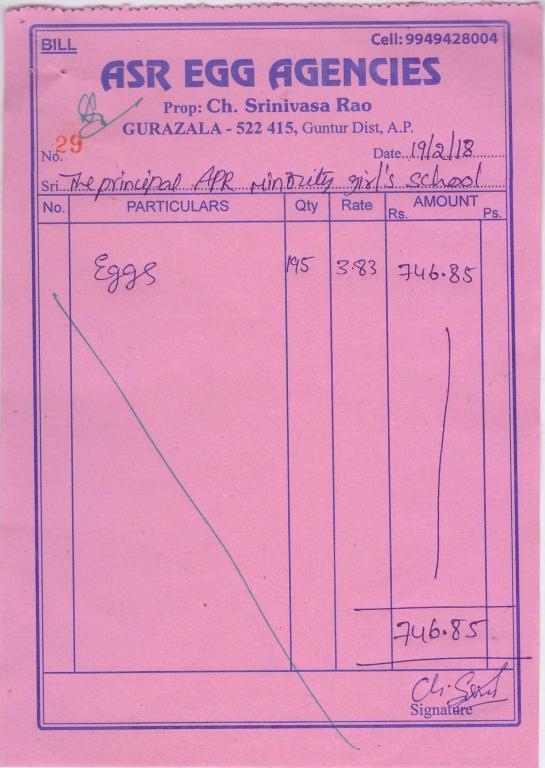 BILL
Cell: 9949428004
ASR EGG AGENCIES
Prop: Ch. Srinivasa Rao
GURAZALA - 522 415, Guntur Dist, A.P.
No. 29
Date. 19/2/18
Sri. The principal APR minority girl's school
No. PARTICULARS Qty Rate AMOUNT
Rs. Ps.
Eggs 195 3.83 746.85
746.85
Signature